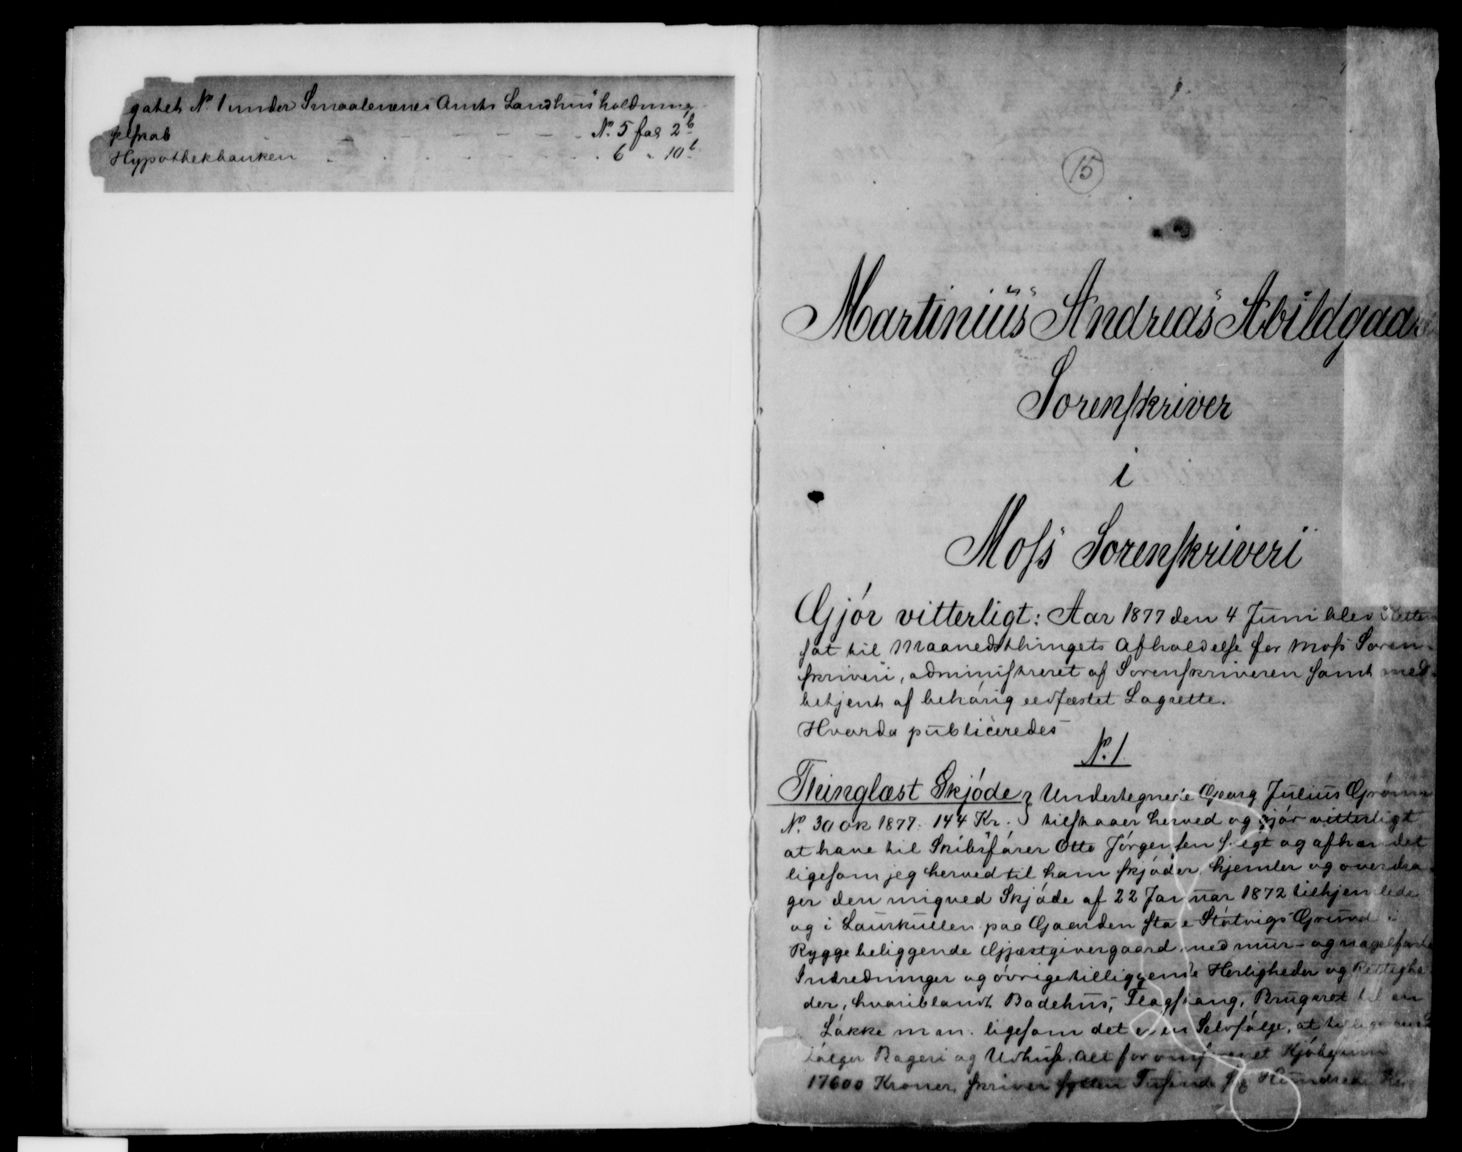 gatets No 1 under Smaalenenes Amts Landhusholdnings
selskab No 5 fas 2 b
Hypothekbanken 6 " 10 b
15
Martinius Andreas Abildgaard
Sorenskriver
i
Moss Sorenskriveri
Gjør vitterligt: Aar 1877 den 4 Juni blev Retten
sat til Maanedsthingets Afholdelse for Moss Soren-
skriveri, administreret af Sorenskriveren samt med-
betjent af behørig eedfæstet Lagrette.
Hvorda publiceredes
No. 1
Thinglæst Skjøde Undertegnede Georg Julius Grønn
No. 30 ok 1877. 144 Kr. tilstaaer herved og gjør vitterligt
at have til Skibsfører Otto Jørgensen solgt og afhændet
ligesom jeg herved til ham skjøder, hjemler og overdra-
ger den mig ved Skjøde af 22 Januar 1872 tilhjemlede
og i Laurkullen paa Gaarden store Støtvigs Grund i
Rygge beliggende Gjæstgivergaard med mur- og nagelfaste
Indredninger og øvrige tilliggende Herligheder og Rettighe-
der, hvoriblandt Badehus, Flagstang, Brugsret til en
Løkke m. m. ligesom det er en Selvfølge, at
følger Bageri og Udhuse. Alt for omforenet Kjøbesum
17600 Kroner, skriver sytten Tusinde sex Hundrede Kr